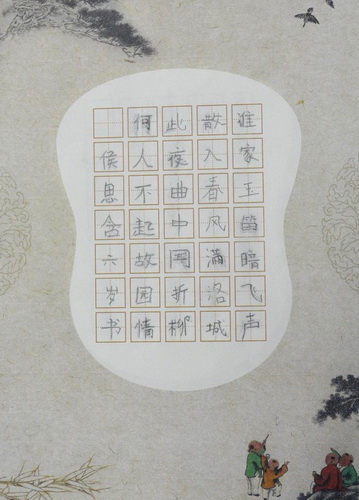 谁家玉笛暗飞声
散入春风满洛城
此夜曲中闻折柳
何人不起故园情
侯思含六岁书